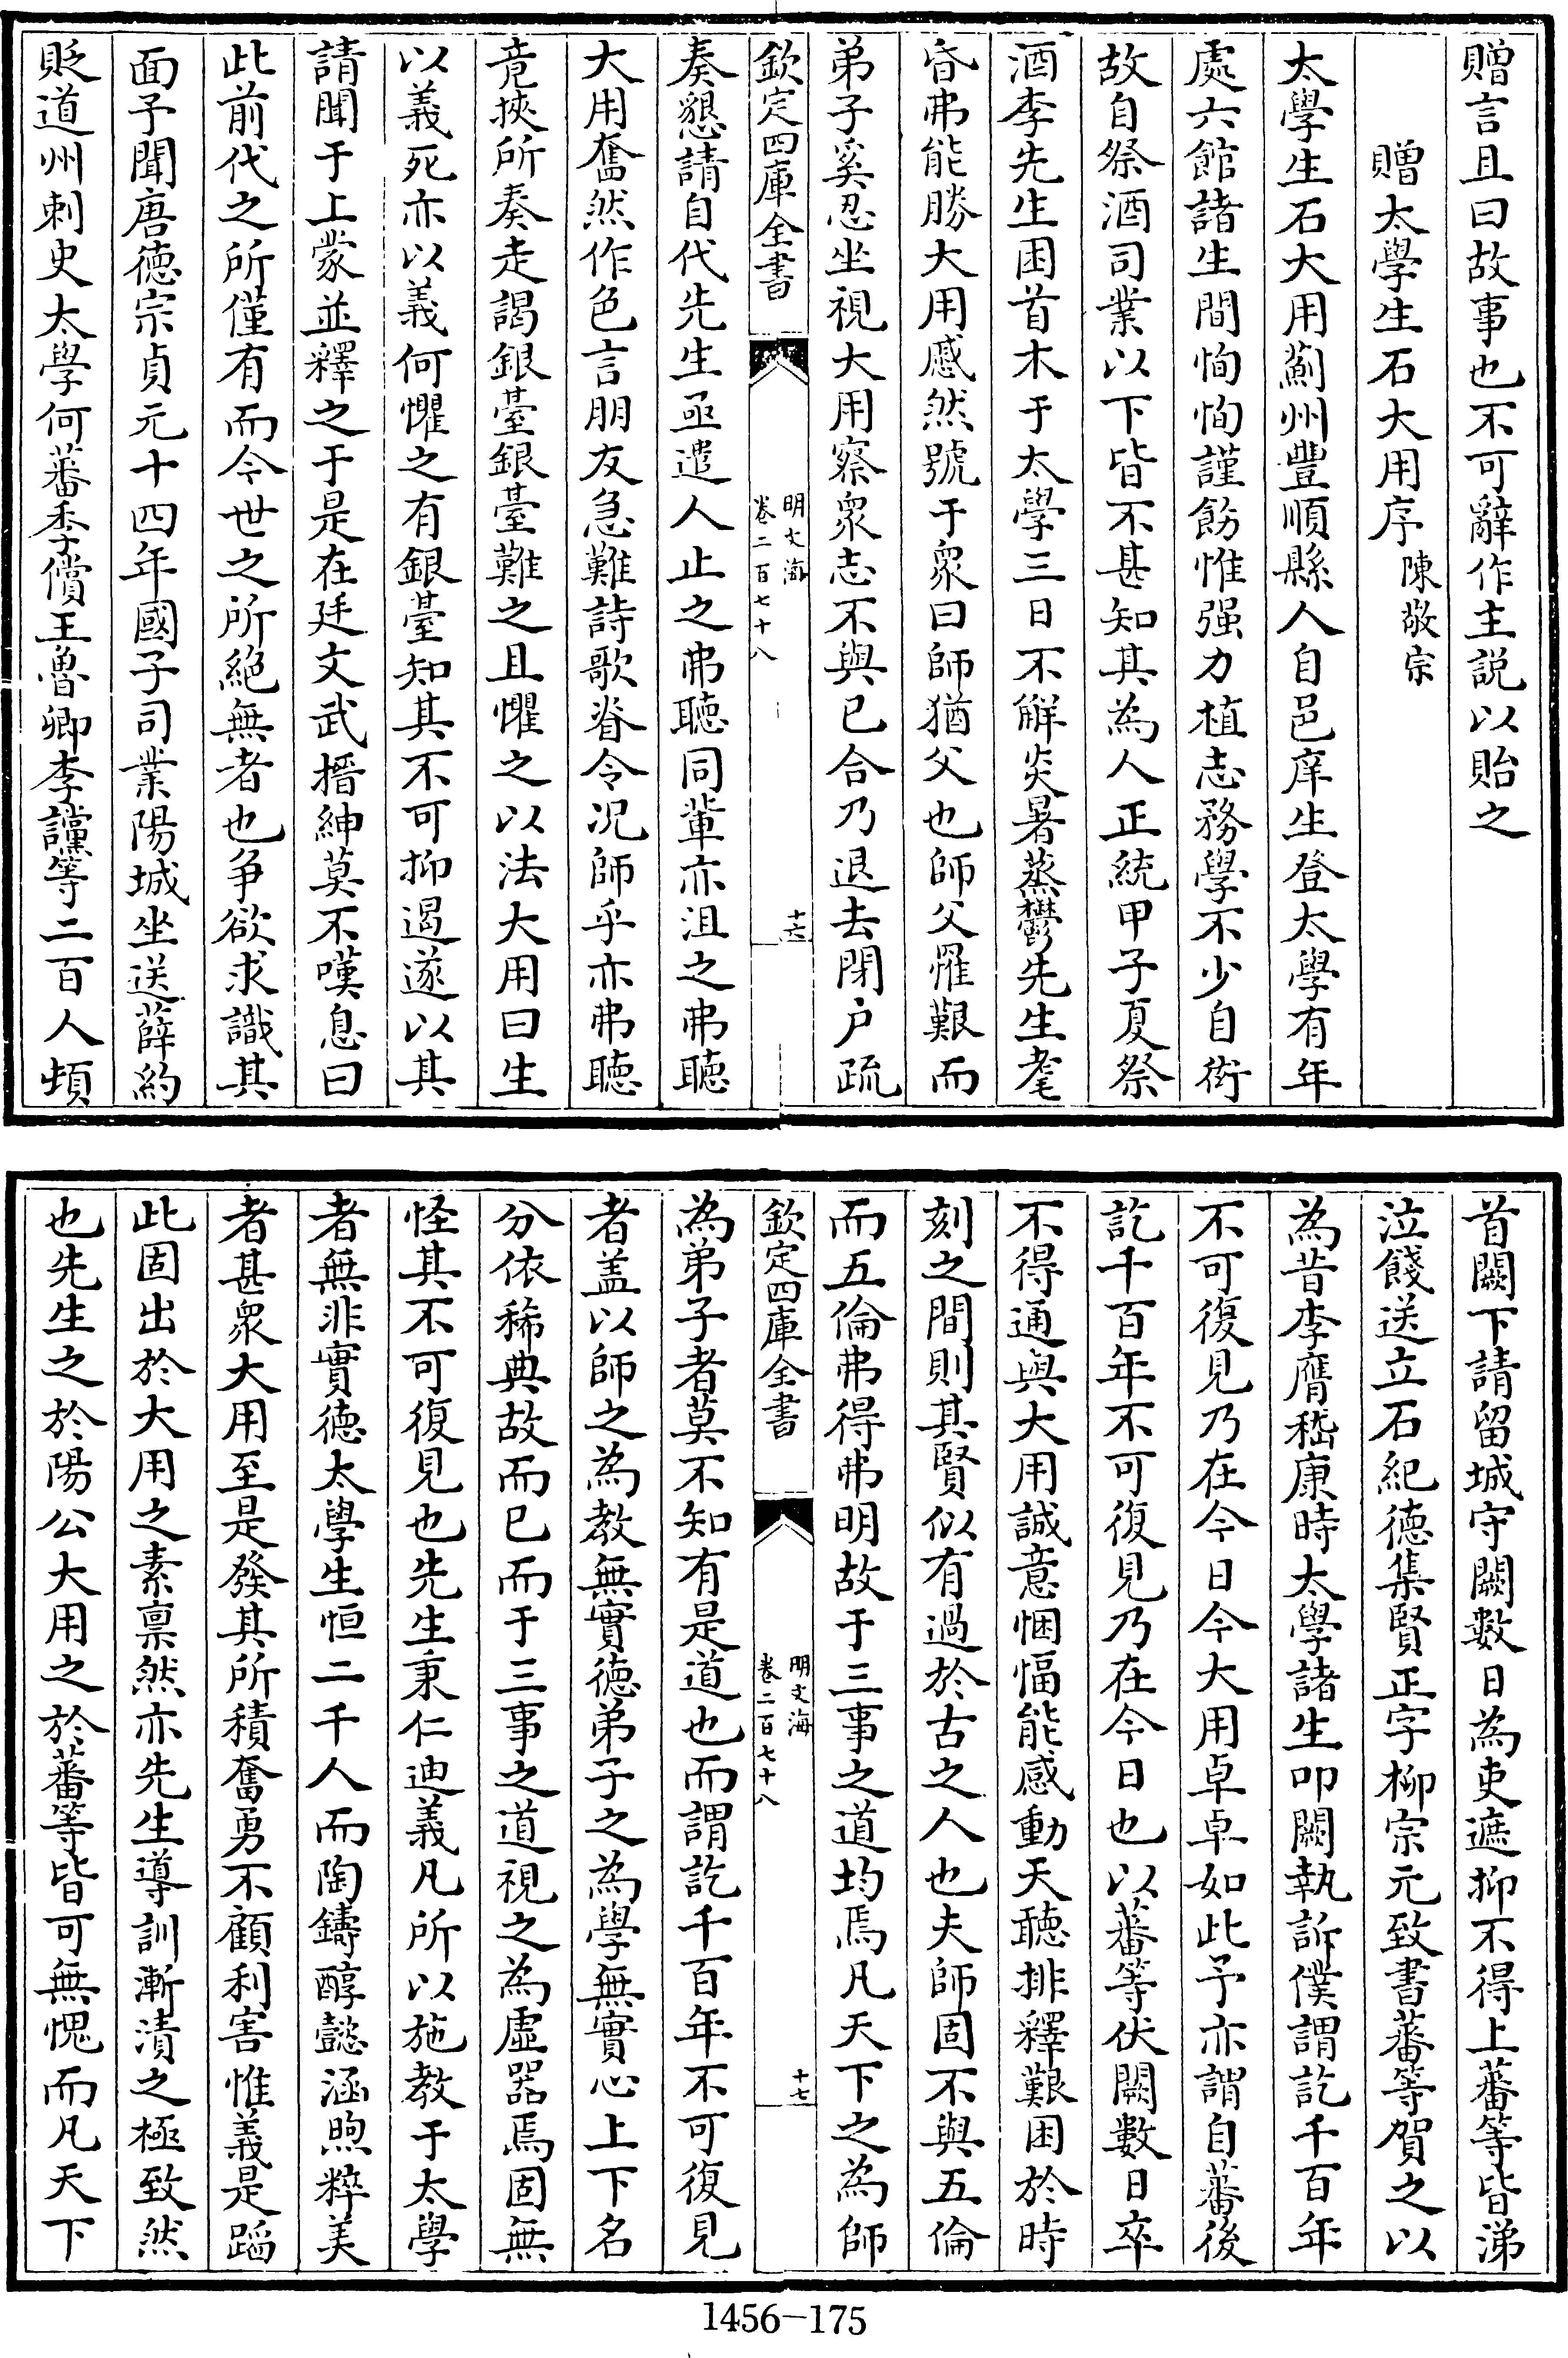 贈言且曰故事也不可辭作主説以貽之
贈太學生石大用序陳敬宗
太學生石大用薊州豐順縣人自邑庠生登太學有年
處六館諸生間恂恂謹飭惟强力植志務學不少自衒
故自祭酒司業以下皆不甚知其為人正統甲子夏祭
酒李先生困首木于太學三日不解炎暑蒸鬱先生耄
昏弗能勝大用慼然號于衆曰師猶父也師父罹艱而
弟子奚忍坐視大用察衆志不與已合乃退去閉户疏
欽定四庫全書
明文海
卷二百七十八
十六
奏懇請自代先生亟遣人止之弗聽同輩亦沮之弗聽
大用奮然作色言朋友急難詩歌脊令况師乎亦弗聽
竟挾所奏走謁銀臺銀臺難之且懼之以法大用曰生
以義死亦以義何懼之有銀臺知其不可抑遏遂以其
請聞于上蒙並釋之于是在廷文武搢紳莫不嘆息曰
此前代之所僅有而今世之所絶無者也争欲求識其
面予聞唐德宗貞元十四年國子司業陽城坐送薛約
貶道州刺史太學何蕃季償王魯卿李讜等二百人頓
首闕下請留城守闕數日為吏遮抑不得上蕃等皆涕
泣餞送立石紀德集賢正字柳宗元致書蕃等賀之以
為昔李膺嵇康時太學諸生叩闕執訴僕謂訖千百年
不可復見乃在今日今大用卓卓如此予亦謂自蕃後
訖千百年不可復見乃在今日也以蕃等伏闕數日卒
不得通與大用誠意悃愊能感動天聽排釋艱困於時
刻之間則其賢似有過於古之人也夫師固不與五倫
而五倫弗得弗明故于三事之道均焉凡天下之為師
欽定四庫全書
明文海
卷二百七十八
十七
為弟子者莫不知有是道也而謂訖千百年不可復見
者盖以師之為教無實德弟子之為學無實心上下名
分依稀典故而已而于三事之道視之為虚器焉固無
怪其不可復見也先生秉仁迪義凡所以施教于太學
者無非實德太學生恒二千人而陶鑄醇懿涵煦粹美
者甚衆大用至是發其所積奮勇不顧利害惟義是蹈
此固出於大用之素禀然亦先生導訓漸漬之極致然
也先生之於陽公大用之於蕃等皆可無愧而凡天下
1456-175